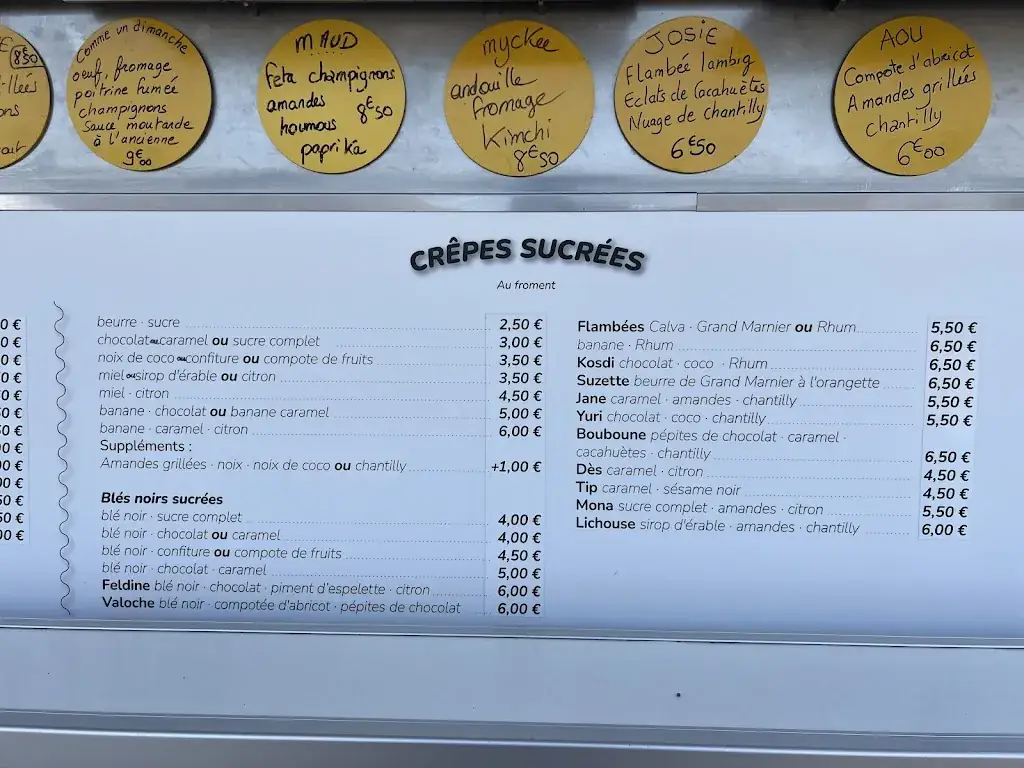 8€50
Comme un dimanche
œuf, fromage
poitrine fumée
champignons
sauce moutarde
à l'ancienne
9€00
MAUD
feta champignons
amandes 8€50
houmous
paprika
myckee
andouille
fromage
Kimchi
8€50
JOSIE
Flambée lambig
Eclats de Cacahuètes
Nuage de chantilly
6€50
AOU
Compote d'abricot
Amandes grillées
chantilly
6€00
CRÊPES SUCRÉES
Au froment
beurre · sucre 2,50 €
chocolat ou caramel ou sucre complet 3,00 €
noix de coco ou confiture ou compote de fruits 3,50 €
miel ou sirop d'érable ou citron 3,50 €
miel · citron 4,50 €
banane · chocolat ou banane caramel 5,00 €
banane · caramel · citron 6,00 €
Suppléments :
Amandes grillées · noix · noix de coco ou chantilly +1,00 €
Blés noirs sucrées
blé noir · sucre complet 4,00 €
blé noir · chocolat ou caramel 4,00 €
blé noir · confiture ou compote de fruits 4,50 €
blé noir · chocolat · caramel 5,00 €
Feldine blé noir · chocolat · piment d'espelette · citron 6,00 €
Valoche blé noir · compotée d'abricot · pépites de chocolat 6,00 €
Flambées Calva · Grand Marnier ou Rhum 5,50 €
banane · Rhum 6,50 €
Kosdi chocolat · coco · Rhum 6,50 €
Suzette beurre de Grand Marnier à l'orangette 6,50 €
Jane caramel · amandes · chantilly 5,50 €
Yuri chocolat · coco · chantilly 5,50 €
Bouboune pépites de chocolat · caramel ·
cacahuètes · chantilly 6,50 €
Dès caramel · citron 4,50 €
Tip caramel · sésame noir 4,50 €
Mona sucre complet · amandes · citron 5,50 €
Lichouse sirop d'érable · amandes · chantilly 6,00 €